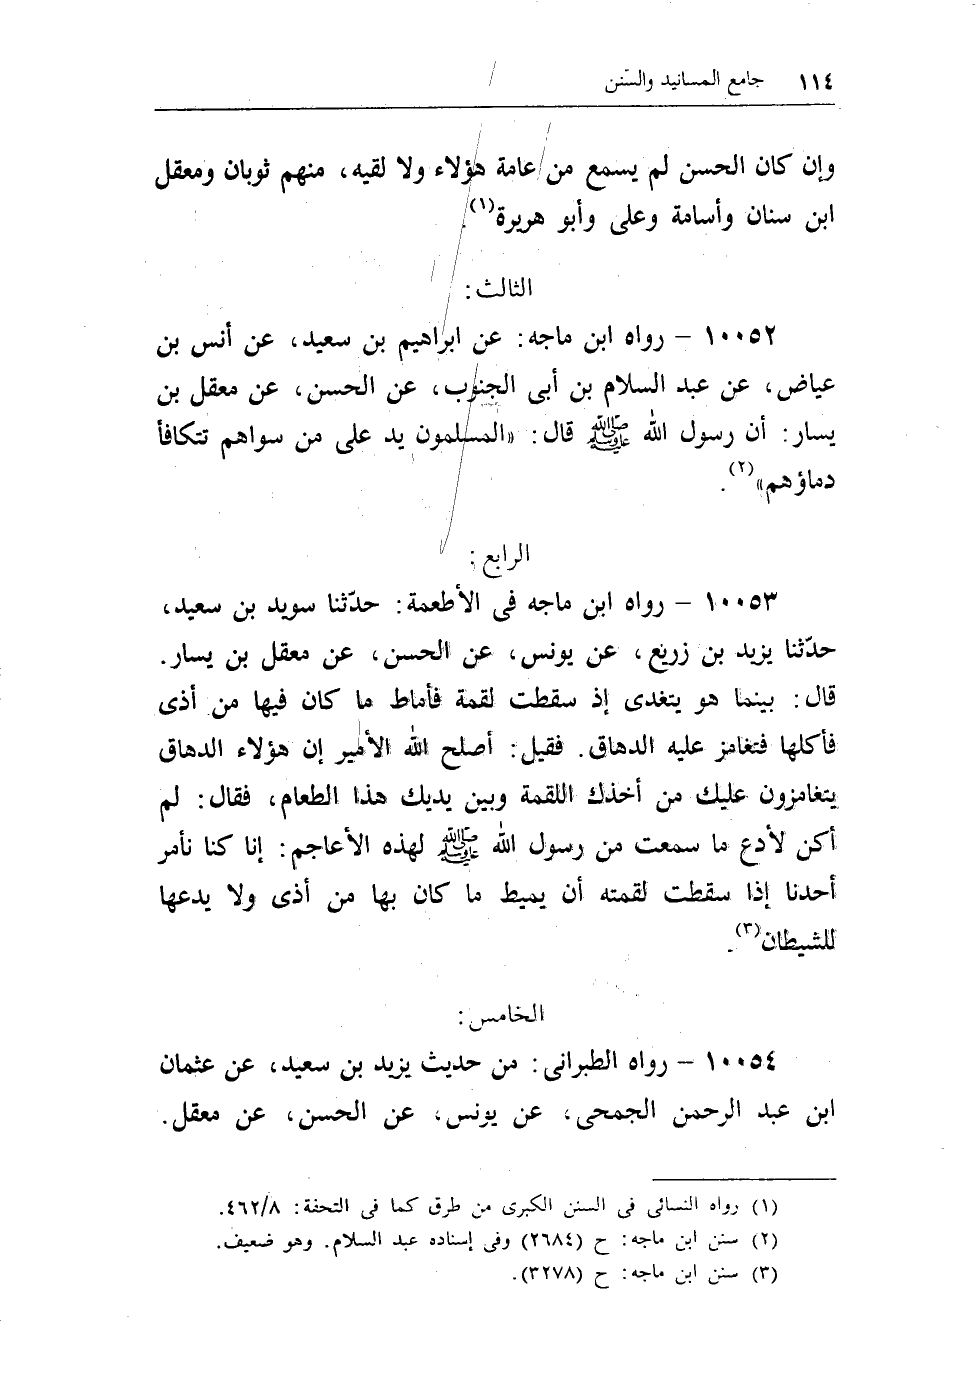 ١١٤ جامع المسانيد والسّنن
وإن كان الحسن لم يسمع من عامة هؤلاء ولا لقيه، منهم ثوبان ومعقل
ابن سنان وأسامة وعلى وأبو هريرة(١).
الثالث:
١٠٠٥٢ – رواه ابن ماجه: عن ابراهيم بن سعيد، عن أنس بن
عياض، عن عبد السلام بن أبى الجنوب، عن الحسن، عن معقل بن
يسار: أن رسول الله ﷺ قال: «المسلمون يد على من سواهم تتكافأ
دماؤهم»(٢).
الرابع:
١٠٠٥٣ – رواه ابن ماجه فى الأطعمة: حدّثنا سويد بن سعيد،
حدّثنا يزيد بن زريع، عن يونس، عن الحسن، عن معقل بن يسار.
قال: بينما هو يتغدى إذ سقطت لقمة فأماط ما كان فيها من أذى
فأكلها فتغامز عليه الدهاق. فقيل: أصلح الله الأمير إن هؤلاء الدهاق
يتغامزون عليك من أخذك اللقمة وبين يديك هذا الطعام، فقال: لم
أكن لأدع ما سمعت من رسول الله ﷺ لهذه الأعاجم: إنا كنا نأمر
أحدنا إذا سقطت لقمته أن يميط ما كان بها من أذى ولا يدعها
للشيطان(٣).
الخامس:
١٠٠٥٤ – رواه الطبرانى: من حديث يزيد بن سعيد، عن عثمان
ابن عبد الرحمن الجمحى، عن يونس، عن الحسن، عن معقل.
(١) رواه النسائى فى السنن الكبرى من طرق كما فى التحفة: ٤٦٢/٨.
(٢) سنن ابن ماجه: ح (٢٦٨٤) وفى إسناده عبد السلام. وهو ضعيف.
(٣) سنن ابن ماجه: ح (٣٢٧٨).